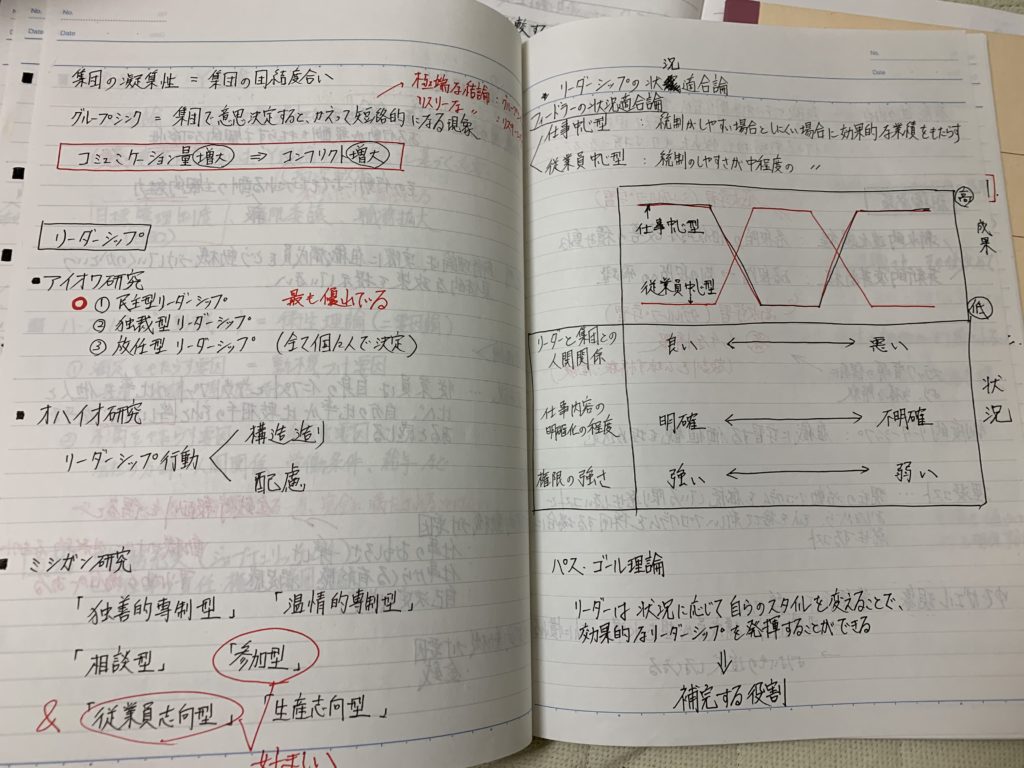 No.
Date
集団の凝集性 = 集団の団結度合い
極端な結論:グループシ
リスリーな :リスキー
グループシンク = 集団で意思決定すると、かえって短絡的になる現象
コミュニケーション量増大 ⇒ コンフリクト増大
リーダーシップ
・アイオワ研究
○ ① 民主型リーダーシップ 最も優れている
② 独裁型リーダーシップ
③ 放任型リーダーシップ (全て個人で決定)
・オハイオ研究
構造造り
リーダーシップ行動
配慮
・ミシガン研究
「独善的専制型」 「温情的専制型」
「相談型」 「参加型」
& 「従業員志向型」 「生産志向型」
好ましい
No.
Date
況
・リーダーシップの状適合論
フィードラーの状況適合論
仕事中心型 : 統制がしやすい場合としにくい場合に効果的な業績をもたらす
従業員中心型 : 統制のしやすさが中程度の 〃
高
仕事中心型
成果
従業員中心型
低
リーダーと集団との人間関係 良い ↔ 悪い
状況
仕事内容の明確化の程度 明確 ↔ 不明確
権限の強さ 強い ↔ 弱い
パス・ゴール理論
リーダーは状況に応じて自らのスタイルを変えることで、
効果的なリーダーシップを発揮することができる
⇓
補完する役割